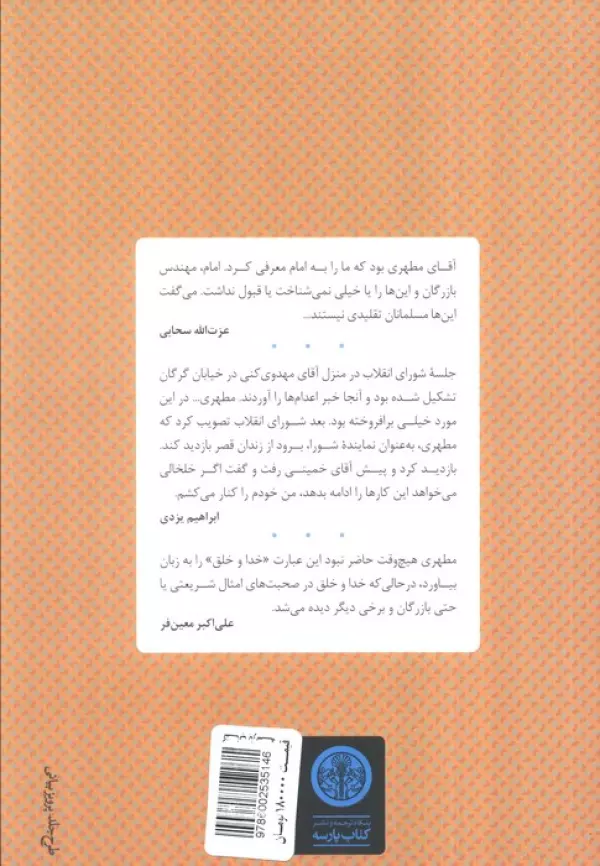 آقـای مطهری بود که ما را بـه امام معرفی کـرد. امام، مهندس
بازرگان و این‌ها را یا خیلی نمی‌شناخت یا قبول نداشت. می‌گفت
این‌ها مسلمانان تقلیدی نیستند...
عزت‌الله سحابی
جلسهٔ شورای انقلاب در منزل آقای مهدوی‌کنی در خیابان گرگان
تشکیل شده بود و آنجا خبر اعدام‌ها را آوردند. مطهری... در این
مورد خیلی برافروخته بود. بعد شورای انقلاب تصویب کرد که
مطهری، به‌عنوان نمایندهٔ شورا، برود از زندان قصر بازدید کند.
بازدید کرد و پیـش آقای خمینـی رفت و گفت اگـر خلخالی
می‌خواهد این کارها را ادامه بدهد، من خودم را کنار می‌کشم.
ابراهیم یزدی
مطهری هیچ‌وقت حاضر نبود این عبارت «خدا و خلق» را به زبان
بیـاورد، درحالی‌که خدا و خلق در صحبت‌های امثال شریعتی یا
حتی بازرگان و برخی دیگر دیده می‌شد.
علی‌اکبر معین‌فر
قیمت ۱۸۰۰۰۰ تومان
9786002535146
بنگاه ترجمه و نشر
کتاب پارسه
طرح جلد: پرویز بیانی